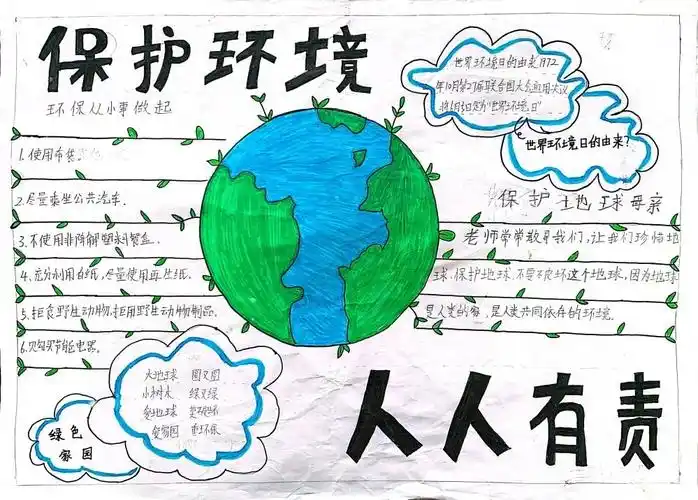 保护环境
环保从小事做起
1.使用布袋
2.尽量乘坐公共汽车.
3.不使用非降解塑料餐盒.
4、充分利用白纸,尽量使用再生纸.
5、拒食野生动物,拒用野生动物制品.
6.购买节能电器.
世界环境日的由来1972
年10月第27届联合国大会
世界环境日的由来?
保护地球母亲
老师常常教导我们,让我们珍惜地
球、保护地球,不要破坏这个地球,因为地球
是人类的,是人类共同依存的环境.
大地球 圆又圆
小树木 绿又绿
爱地球
爱家园 重环保
绿色
家园
人人有责